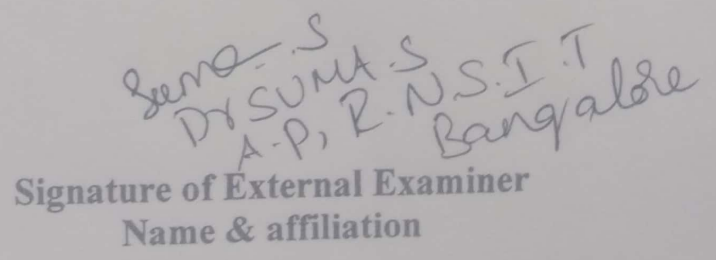 Suma. S
Dr SUMA. S
A.P, R.N.S.I.T
Bangalore
Signature of External Examiner
Name & affiliation